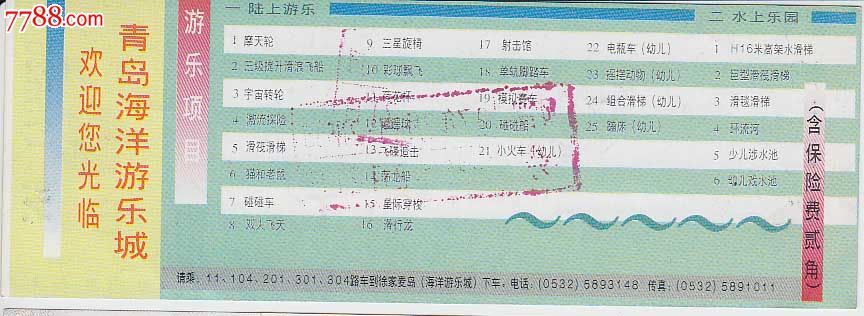 7788.com
青岛海洋游乐城
欢迎您光临
游乐项目
一 陆上游乐
1 摩天轮
2 三级提升滑浪飞船
3 宇宙转轮
4 激流探险
5 滑筏滑梯
6 猫和老鼠
7 碰碰车
8 双人飞天
9 三星旋椅
10 彩球飘飞
11 荷花杯
12
13 飞碟追击
14 苍龙船
15 星际穿梭
16 滑行龙
17 射击馆
18 单轨脚踏车
19 模拟赛车
20 碰碰船
21 小火车(幼儿)
22 电瓶车(幼儿)
23 摇摆动物(幼儿)
24 组合滑梯(幼儿)
25 蹦床(幼儿)
二 水上乐园
1 H16米高架水滑梯
2 巨型滑筏滑梯
3 滑毯滑梯
4 环流河
5 少儿涉水池
6 幼儿戏水池
(含保险费贰角)
请乘:11、104、201、301、304路车到徐家麦岛(海洋游乐城)下车,电话:(0532)5893148 传真:(0532)5891011